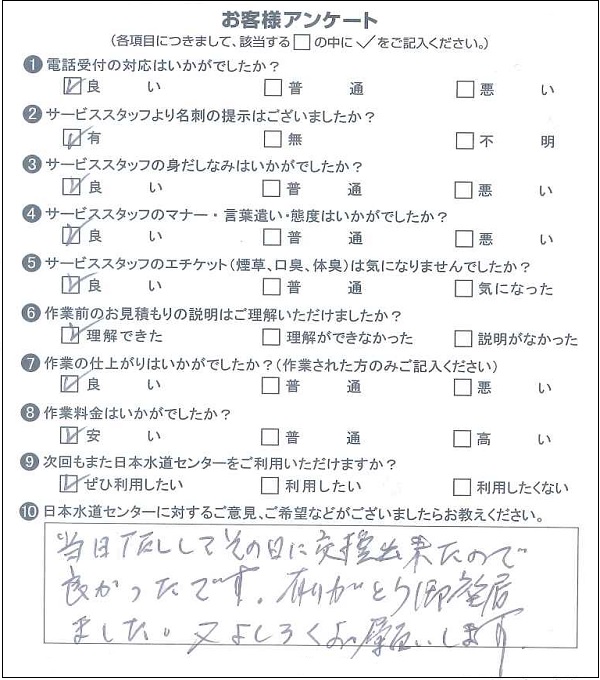 お客様アンケート
(各項目につきまして、該当する□の中に✓をご記入ください。)
❶電話受付の対応はいかがでしたか?
☑良い □普通 □悪い
❷サービススタッフより名刺の提示はございましたか?
☑有 □無 □不明
❸サービススタッフの身だしなみはいかがでしたか?
☑良い □普通 □悪い
❹サービススタッフのマナー・言葉遣い・態度はいかがでしたか?
☑良い □普通 □悪い
❺サービススタッフのエチケット(煙草、口臭、体臭)は気になりませんでしたか?
☑良い □普通 □気になった
❻作業前のお見積もりの説明はご理解いただけましたか?
☑理解できた □理解ができなかった □説明がなかった
❼作業の仕上がりはいかがでしたか?(作業された方のみご記入ください)
☑良い □普通 □悪い
❽作業料金はいかがでしたか?
☑安い □普通 □高い
❾次回もまた日本水道センターをご利用いただけますか?
☑ぜひ利用したい □利用したい □利用したくない
❿日本水道センターに対するご意見、ご希望などがございましたらお教えください。
当日 してその日に交換出来たので
良かったです。有りがとう御座居
ました。又よろしくお願いします